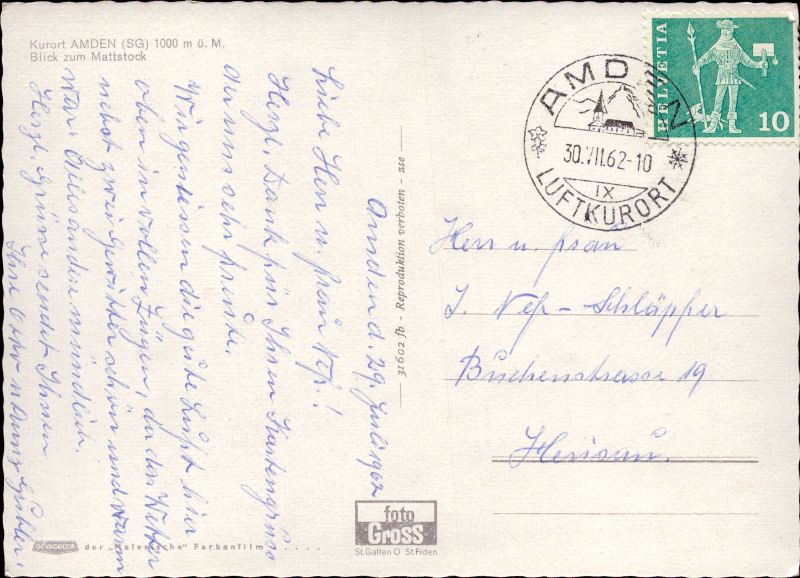 Kurort AMDEN (SG) 1000 m ü. M.
Blick zum Mattstock
Amden d. 29. Juli 1962
Liebe Herr u. Frau Nef!
Herzl. Dank für Ihren Kartengruss
der uns sehr freute.
Wir geniessen die gute Luft hier
oben in vollen Zügen, da das Wetter
nebst zwei Gewitter schön und warm
war. Alles andere mündlich.
Herzl. Grüsse sendet Ihnen
Ihre
31602 fb - Reproduktion verboten - zse
HELVETIA
10
AMDEN
30.VII.62-10
IX
LUFTKURORT
Herr u. Frau
J. Nef-Schläpfer
Buchenstrasse 19
Herisau.
foto
Gross
St.Gallen O St.Fiden
GEVACOLOR der "malerische" Farbenfilm